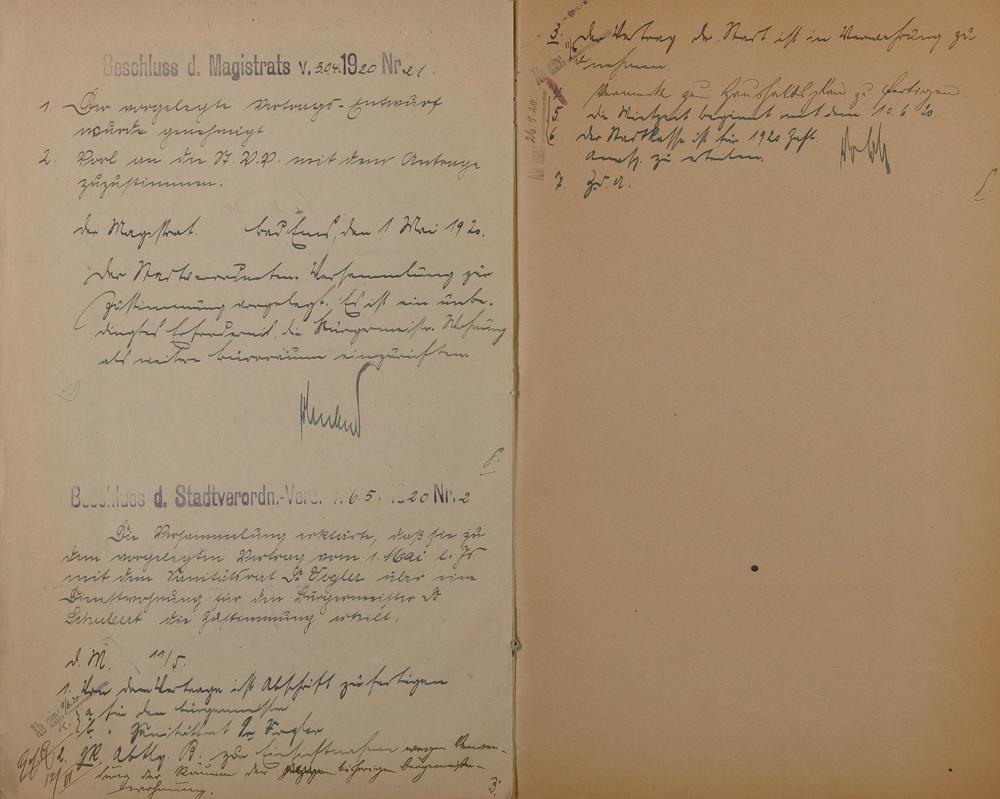 Beschluss d. Magistrats v. 3.04.1920 Nr. 21.
1. Der vorgelegte Vertrags-Entwurf
wurde genehmigt.
2. Vorl. an die St. V. V. mit dem Antrage
zuzustimmen.
Der Magistrat. Bad Ems, den 1 Mai 1920.
Der Stadtverordneten-Versammlung zur
Zustimmung vorgelegt. Es ist ein unbe-
dingtes Erfordernis, die Bürgermeister-Wohnung
als weitere Büroräume einzurichten.
Beschluss d. Stadtverordn.-Vers. v. 6.5. 1920 Nr. 2
Die Versammlung erklärte, daß sie zu
dem vorgelegten Vertrag vom 1. Mai l. Js
mit dem Sanitätsrat Dr Vogler über eine
Dienstwohnung für den Bürgermeister Dr
Schubert die Zustimmung erteilt.
d. M. 11/5.
1. Von dem Vertrage ist Abschrift zu fertigen
a für den Bürgermeister
b. " Sanitätsrat Dr Vogler
2. Abtlg. B. zur Einsichtnahme wegen Verwen-
dung der Räume der bisherigen Bürgermeister-
wohnung.
3.
3. Der Vertrag der Stadt ist in Verwahrung zu
nehmen.
Vermerk zum Haushaltsplan zu fertigen.
5. Die Mietzeit beginnt mit dem 10.6 20
6 Der Stadtkasse ist für 1920 Zahl.
Anwsg. zu erteilen.
7. Z. d. A.
26.5.20.